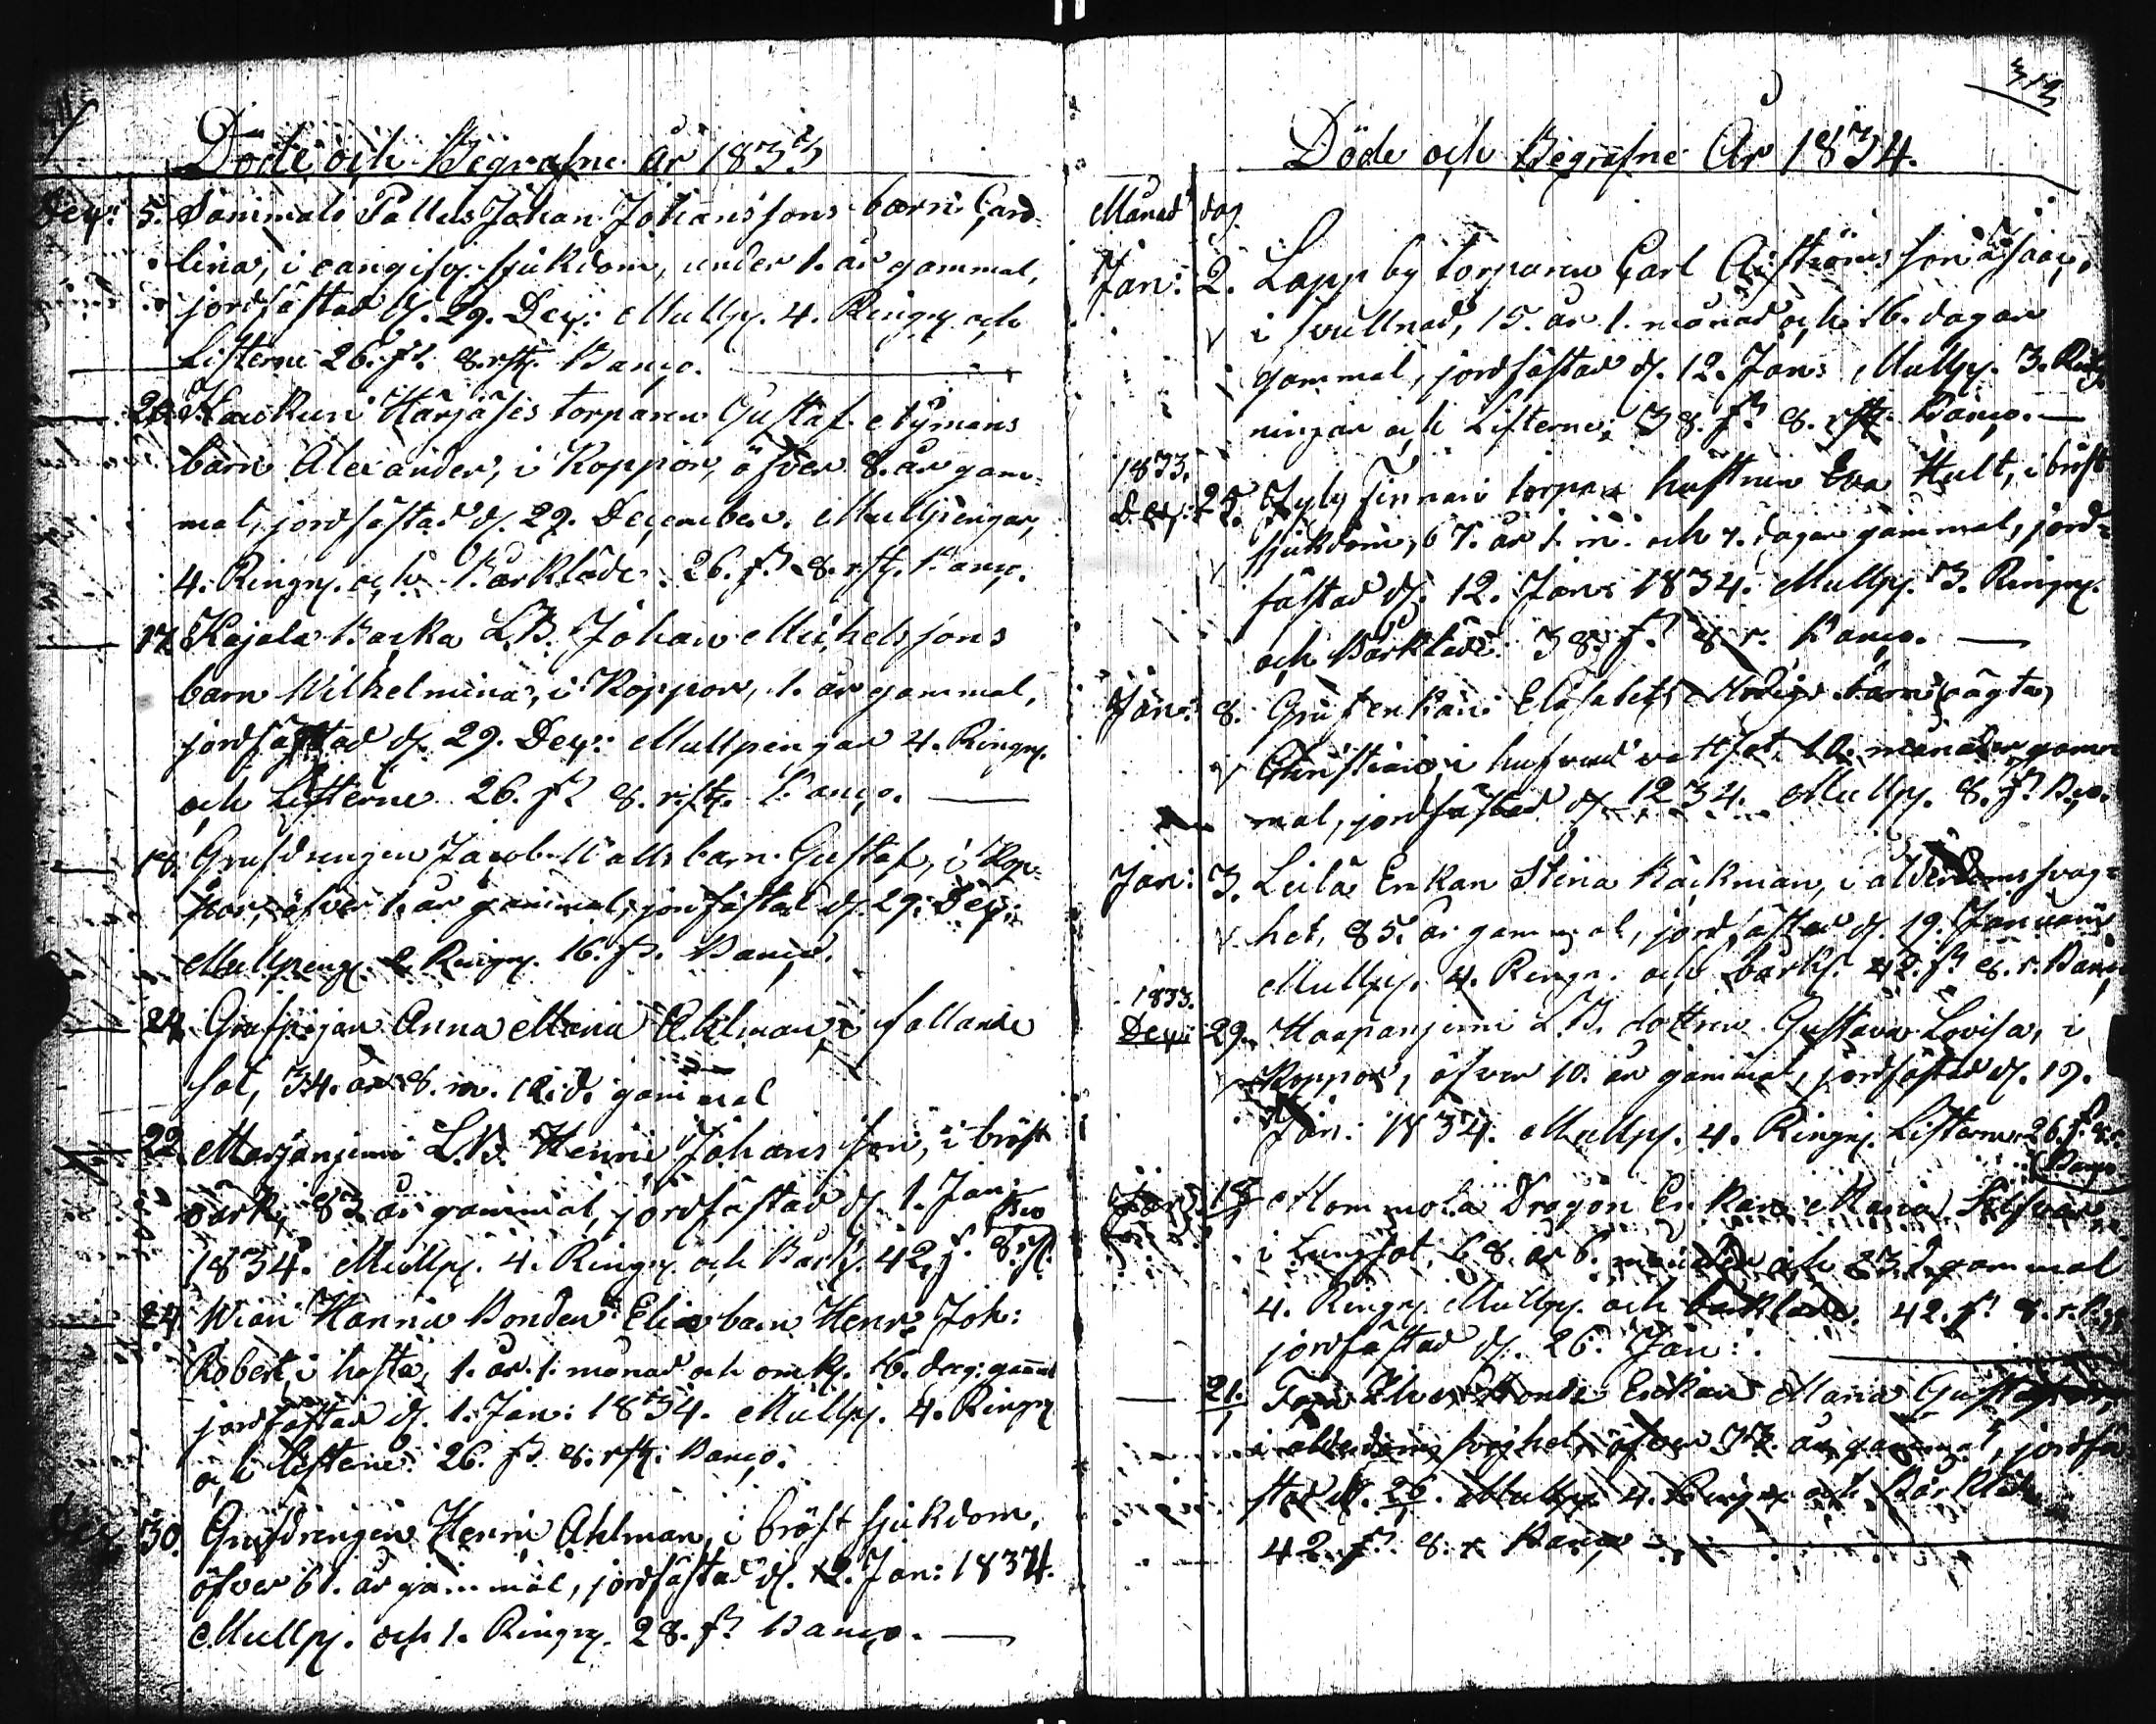 Döde och Begrafne år 1833
Dec: 5. Sammalo Pallus Johan Johanssons barn Caro-
lina, i oangifven sjukdom, under 1. år gammal,
jordfästad d. 29. Dec: Mullp. 4. Ringn. och
Listerne 26. s. 8. rst. Banco.
Harjäs torparen Gustaf Nymans
barn Alexander, i Koppor, öfver 8. år gam-
mal, jordfästad d. 29. December. Mullpengar,
4. Ringn. och Bårkläde 26. s. 8. rst. Banco.
17. Kajala Backa L.B. Johan Michelssons
barn Wilhelmina, i Koppor, 1. år gammal,
jordfästad d. 29. Dec: Mullpengar 4. Ringn.
och Listerne 26. s. 8. rst. Banco.
18. Grufdrengen Jacob Walls barn Gustaf, i Kop-
por, öfver 1. år gammal, jordfästad d. 29. Dec:
Mullpeng. Ringn. 16. s. Banco.
24. Grufpigan Anna Maria Ahlman, i fallande
sot, 34. år 8. m. 12. d. gammal
22. Marjanjemi L.B. Henric Johansson, i bröst
värk, 83. år gammal, jordfästad d. 1. Jan:
1834. Mullp. 4. Ringn. och Bårk. 42. s. 8. rst. Bco
24. Wiari Hannu Bonden Elias barn Henr. Joh:
Robert, i hosta, 1. år 1. månad och omkr. 16. dag: gammal
jordfästad d. 1. Jan: 1834. Mullp. 4. Ringn
och Listerne 26. s. 8. rst. Banco.
Dec 30. Grufdrengen Henric Ahlman, i bröst sjukdom,
öfver 61. år gammal, jordfästad d. 12. Jan: 1834.
Mullp. och 1. Ringn. 28. s. Banco.
313
Döde och Begrafne År 1834.
Månad dag
Jan: 2. Lapp by torparen Carl Aiströms son
i svullnad, 15. år 1. månad och 16. dagar
gammal, jordfästad d. 12. Jan: Mullp. 3. Ring
ningar och Listerne 38. s. 8. rst. Banco.
1833.
Dec: 25. Kyly Finnari torpare hustrun Eva Hult, i bröst
sjukdom, 67. år 1. m. och 7. dagar gammal, jord-
fästad d. 12. Jan: 1834. Mullp. 3. Ringn.
och Bårkläde 38. s. 8. r. Banco.
Jan: 8. Gruf enkan Elisabets barn oägta
Christian, i hufvud vattsot, 10. månader gam-
mal, jordfästad d. 12 34. Mullp. 8. s. Bco.
Jan: 3. Leilä Enkan Stina Bäckman, i ålderdoms svag-
het, 85. år gammal, jordfästad d. 19. Januarii
Mullp. 4. Ringn. och bårkl. 42. s. 8. r. Banco
1833.
Dec: 29. Haapanjemi L.B. dottren Gustava Lovisa, i
Koppor, öfver 10. år gammal, jordfästad d. 19.
Jan: 1834. Mullp. 4. Ringn. Listerne 26. s. 8. r.
Banco
Jan: 18 Mommola Dragon Enkan Maria Silfvan
i Lungsot, 68. år 6. månader och 23. d. gammal
4. Ringn. Mullp. och bårkläde. 42. s. 8. r. Bco
jordfästad d. 26. Jan:
21. Bonde Enkan Maria
i ålderdoms svaghet, öfver år gammal, jordfä-
stad d. 26. Mullp. 4. Ringn. och Bårkläde
42. s. 8. r. Banco